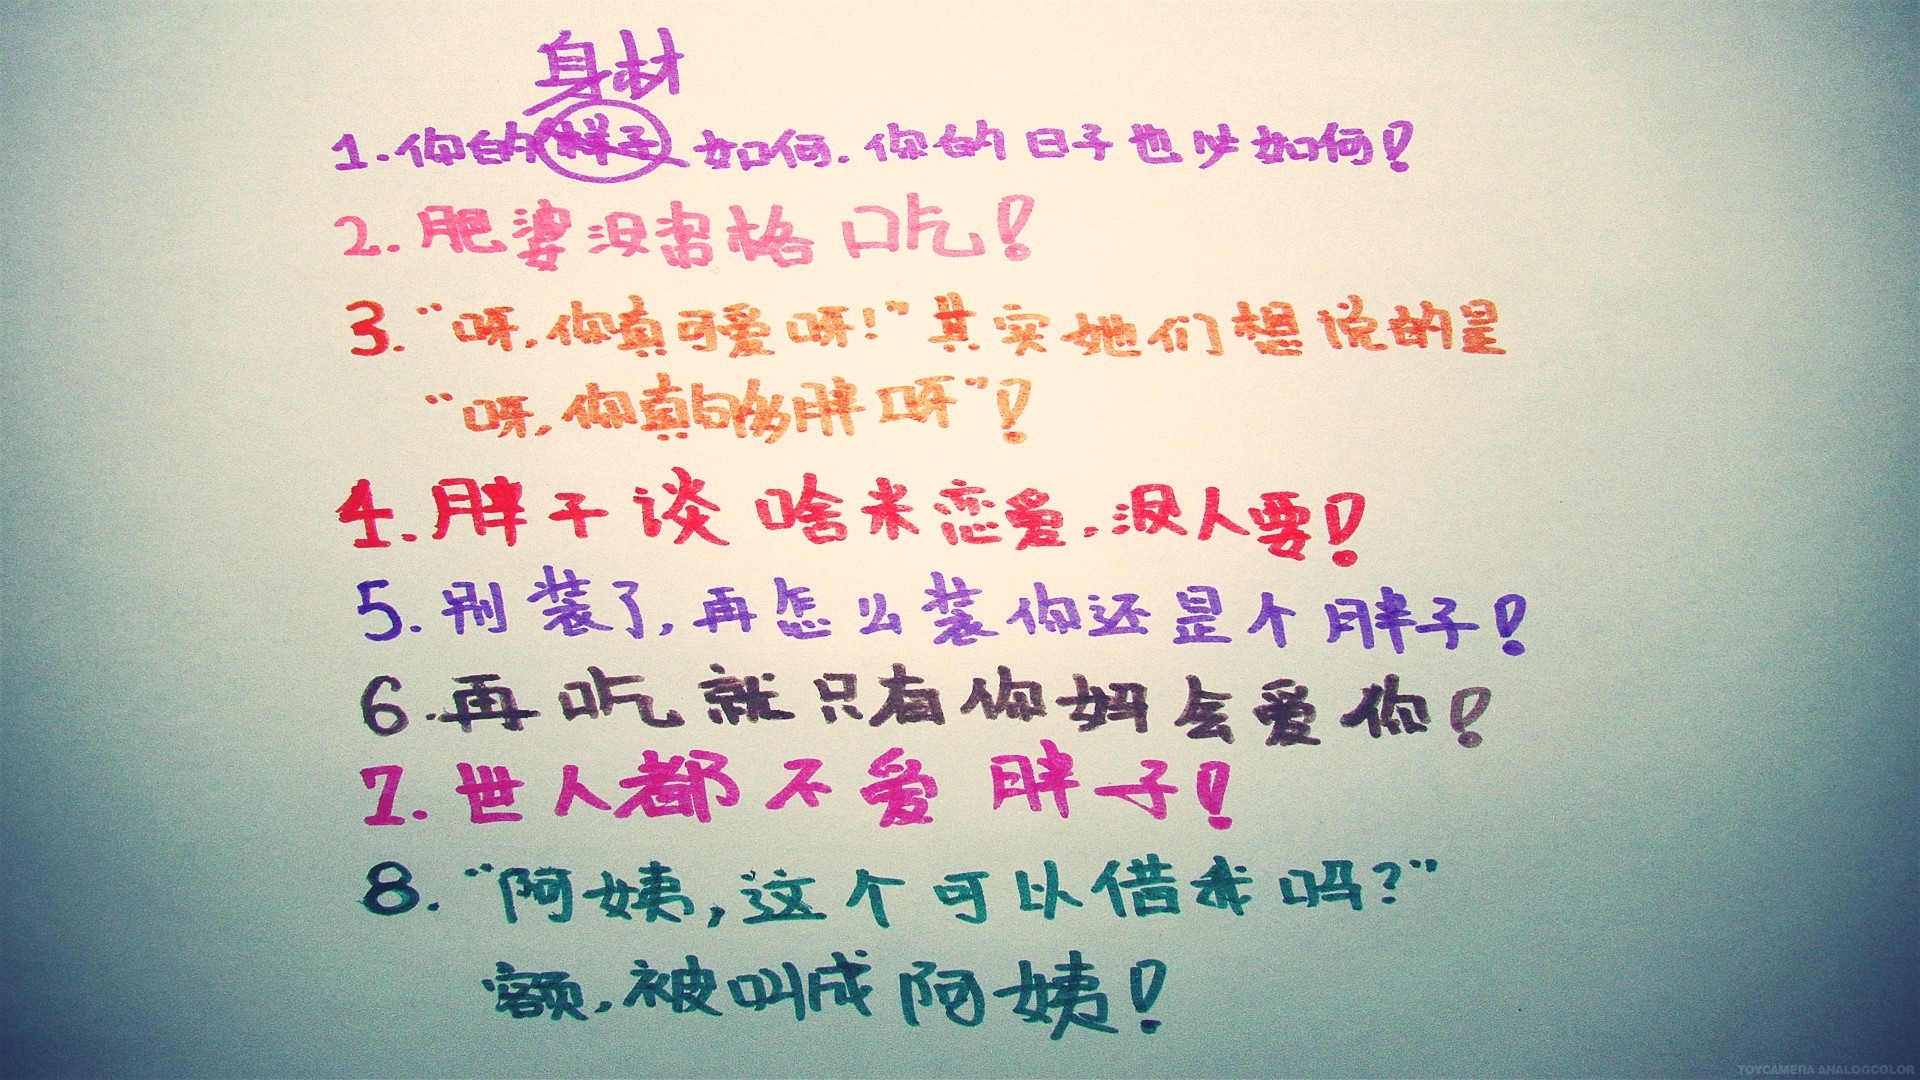 身材
1.你的胖子如何.你的日子也必如何!
2.肥婆没资格口吃!
3."呀,你真可爱呀!"其实她们想说的是
"呀,你真的够胖呀"!
4.胖子谈啥米恋爱.没人要!
5.别装了,再怎么装你还是个胖子!
6.再吃就只有你妈会爱你!
7.世人都不爱胖子!
8."阿姨,这个可以借我吗?"
额.被叫成阿姨!
TOYCAMERA ANALOGCOLOR